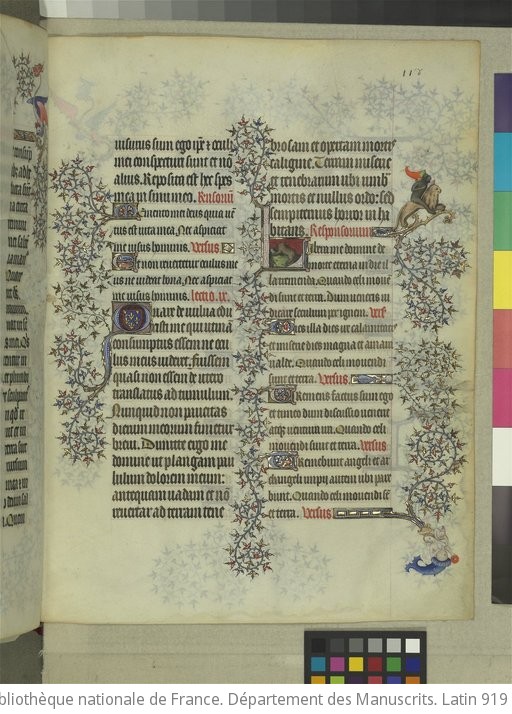 118
uisurus sum ego ip̄e et oculi
mei conspecturi sunt et nō
alius. Reposita est hec spes
mea in sinu meo. Responsoriū
Memento mei deus quia uē
tus est uita mea. Nec aspiciat
me uisus hominis. Versus
Et non reuertetur oculus me
us ut uideat bona. Nec aspiciat
me uisus hominis. lectio .ix.
Quare de uulua edu
xisti me qui utinā
consumptus essem ne ocu
lus meus uideret. Fuissem
quasi non essem de utero
translatus ad tumulum.
Nunquid non paucitas
dierum meorum finietur
breui. Dimitte ergo me
domine ut plangam pau
lulum dolorem meum:
antequam uadam et nō
reuertar ad terram tene
brosam et opertam mortis
caligine. Terram miserie
et tenebrarum ubi umbra
mortis et nullus ordo: sed
sempiternus horror inha
bitans. Responsorium
Libera me domine de
morte eterna in die il
la tremenda. Quando celi mouē
di sunt et terra. Dum ueneris iu
dicare seculum per ignem. Vers
Dies illa dies ire calamitatis
et miserie dies magna et amara
ualde. Quando celi mouendi
sunt et terra. Versus
Tremens factus sum ego
et timeo dum discussio uenerit
atq; uentura ira. Quando celi
mouendi sunt et terra. Versus
Tremebunt angeli et ar
changeli impij autem ubi pare
bunt. Quando celi mouendi sūt
et terra. Versus
bliothèque nationale de France. Département des Manuscrits. Latin 919